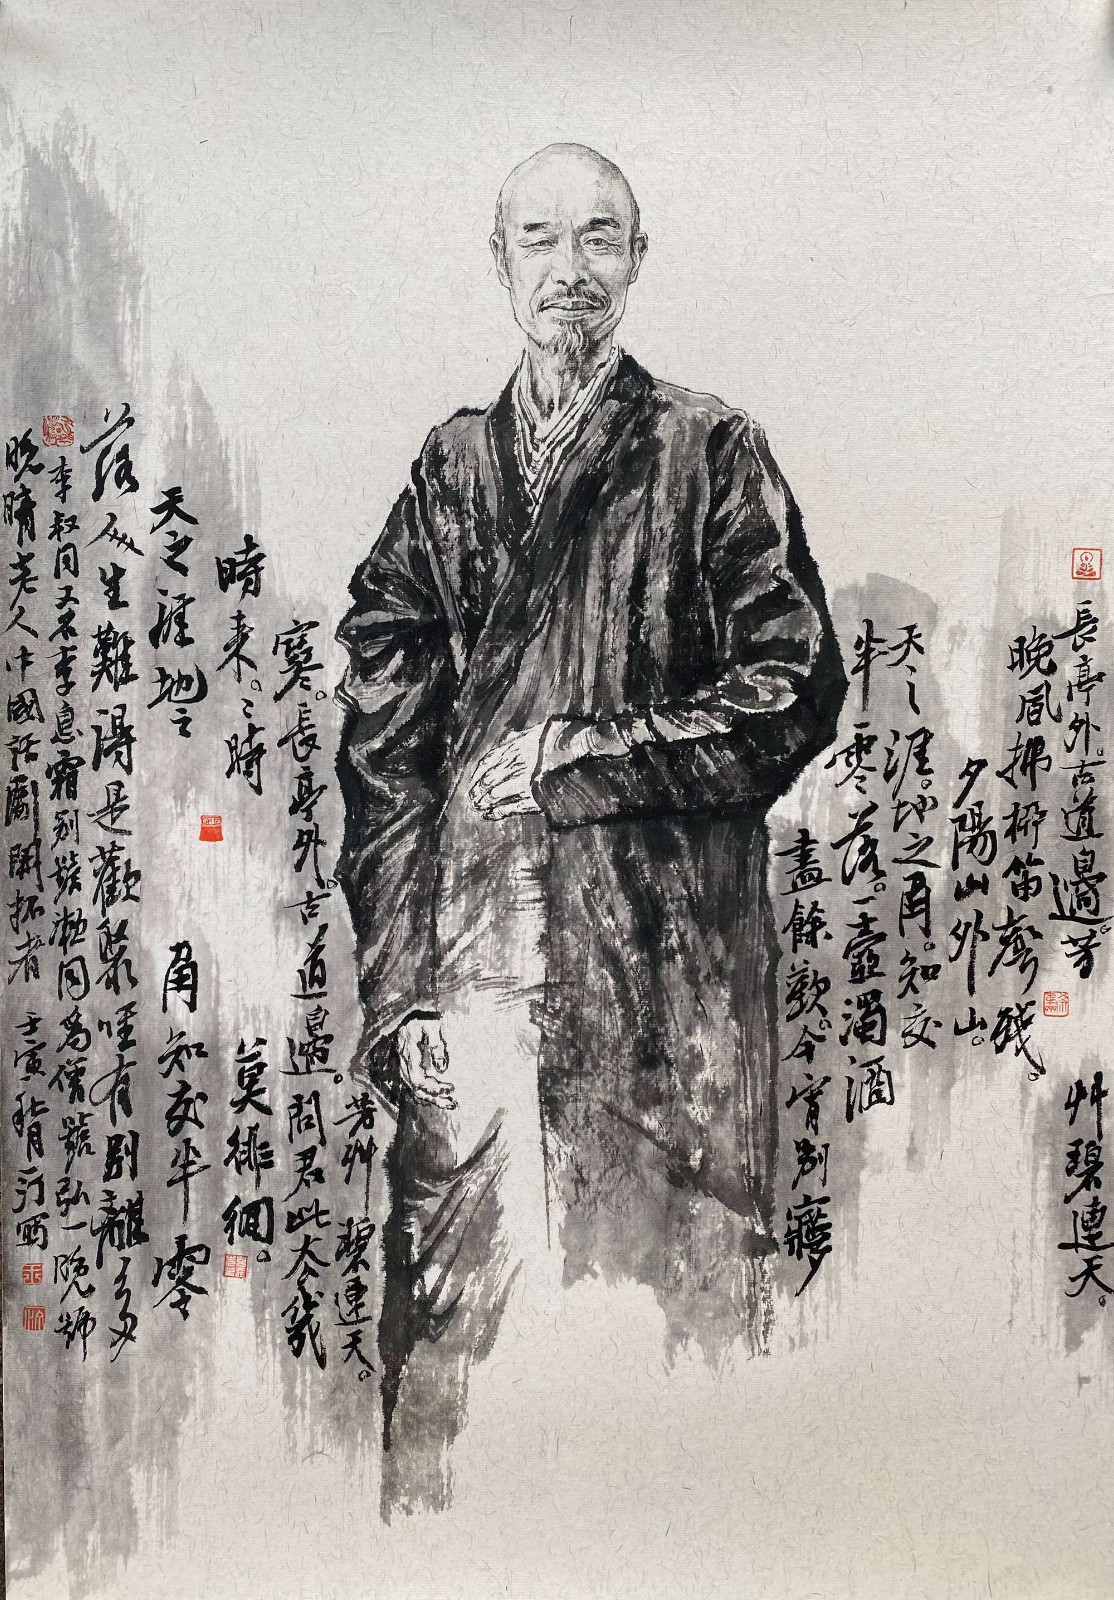 長亭外。古道邊。芳艸碧連天。
晚風拂柳笛聲殘。
夕陽山外山。
天之涯。地之角。知交
半零落。一壺濁酒
盡餘歡。今宵別夢
芳艸碧連天。
寒。長亭外。古道邊。問君此去幾
時来。〻時莫徘徊。
天之涯地之角知交半零
落人生難得是歡聚唯有別離多
李叔同又名李息霜別號漱同為僧號弘一晚號
晚晴老人中國話劇開拓者 壬寅秋月